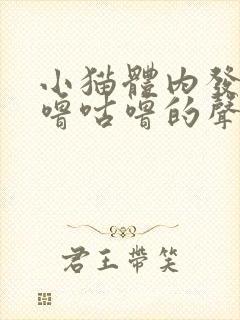 小猫體内發
嚕咕嚕的聲
君王帶笑